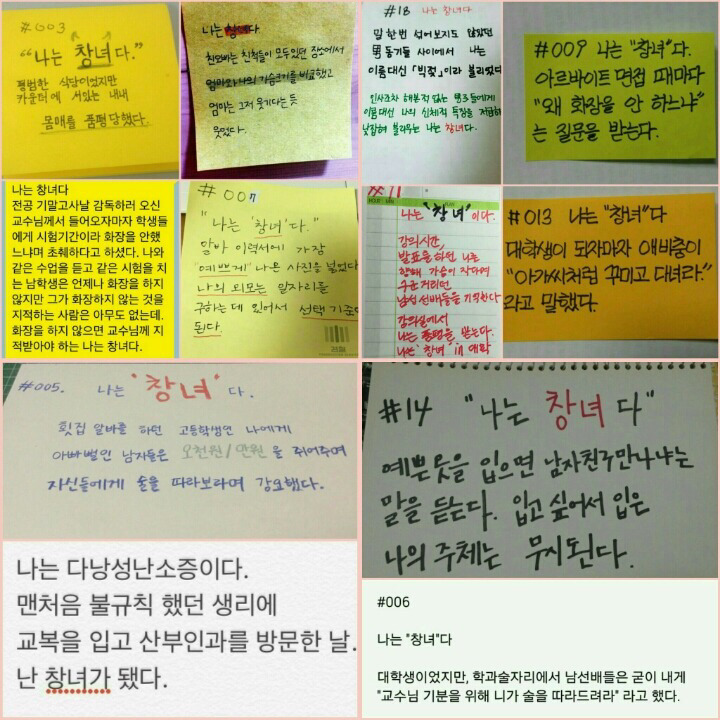 #003
"나는 창녀다."
평범한 식당이었지만
카운터에 서있는 내내
몸매를 품평당했다.
나는 창녀다
친오빠는 친척들이 모두있던 장소에서
엄마와 나의 가슴크기를 비교했고
엄마는 그저 웃기다는 듯
웃었다.
#18 나는 창녀다
말 한번 섞어보지도 않았던
男동기들 사이에서 나는
이름대신 「빅젖」이라 불리었다
인사조차 해본적 없는 男들에게
이름대신 나의 신체적 특징을 저급하
낮잡혀 불리우는 나는 창녀다.
#009 나는 "창녀"다.
아르바이트 면접 때마다
"왜 화장을 안 하느냐"
는 질문을 받는다.
나는 창녀다
전공 기말고사날 감독하러 오신
교수님께서 들어오자마자 학생들
에게 시험기간이라 화장을 안했
느냐며 초췌하다고 하셨다. 나와
같은 수업을 듣고 같은 시험을 치
는 남학생은 언제나 화장을 하지
않지만 그가 화장하지 않는 것을
지적하는 사람은 아무도 없는데.
화장을 하지 않으면 교수님께 지
적받아야 하는 나는 창녀다.
# 007
"나는 '창녀'다."
알바 이력서에 가장
'예쁘게' 나온 사진을 넣었다
나의 외모는 일자리를
구하는 데 있어서 선택 기준이
된다.
#11
나는 '창녀'이다.
강의시간,
발표를 하던 나를
향해 가슴이 작다며
수군거리던
남성 선배들을 기억한다
강의실에서
나는 품평을 받는다.
나는 '창녀'인 대학
#013 나는 "창녀"다
대학생이 되자마자 애비충이
"아가씨처럼 꾸미고 다녀라."
라고 말했다.
#005. 나는 '창녀'다.
횟집 알바를 하던 고등학생인 나에게
아빠뻘인 남자들은 오천원/만원을 쥐어주며
자신들에게 술을 따라보라며 강요했다.
#14 "나는 창녀다"
예쁜옷을 입으면 남자친구만나냐는
말을 듣는다. 입고 싶어서 입은
나의 주체는 무시된다.
나는 다낭성난소증이다.
맨처음 불규칙 했던 생리에
교복을 입고 산부인과를 방문한 날.
난 창녀가 됐다.
#006
나는 "창녀"다
대학생이었지만, 학과술자리에서 남선배들은 굳이 내게
"교수님 기분을 위해 니가 술을 따라드려라" 라고 했다.